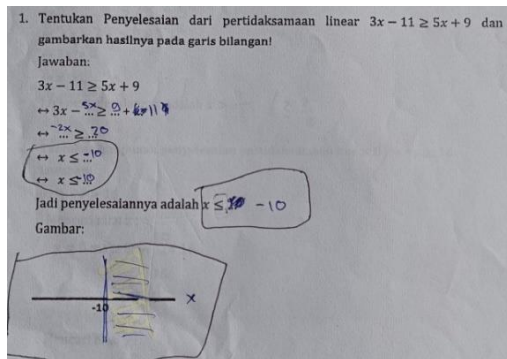 1. Tentukan Penyelesaian dari pertidaksamaan linear 3x − 11 ≥ 5x + 9 dan
gambarkan hasilnya pada garis bilangan!
Jawaban:
3x − 11 ≥ 5x + 9
↔ 3x − 5x ≥ 9 + 11
↔ -2x ≥ 20
↔ x ≤ -10
↔ x ≤ -10
Jadi penyelesaiannya adalah x ≤ -10
Gambar:
-10 x